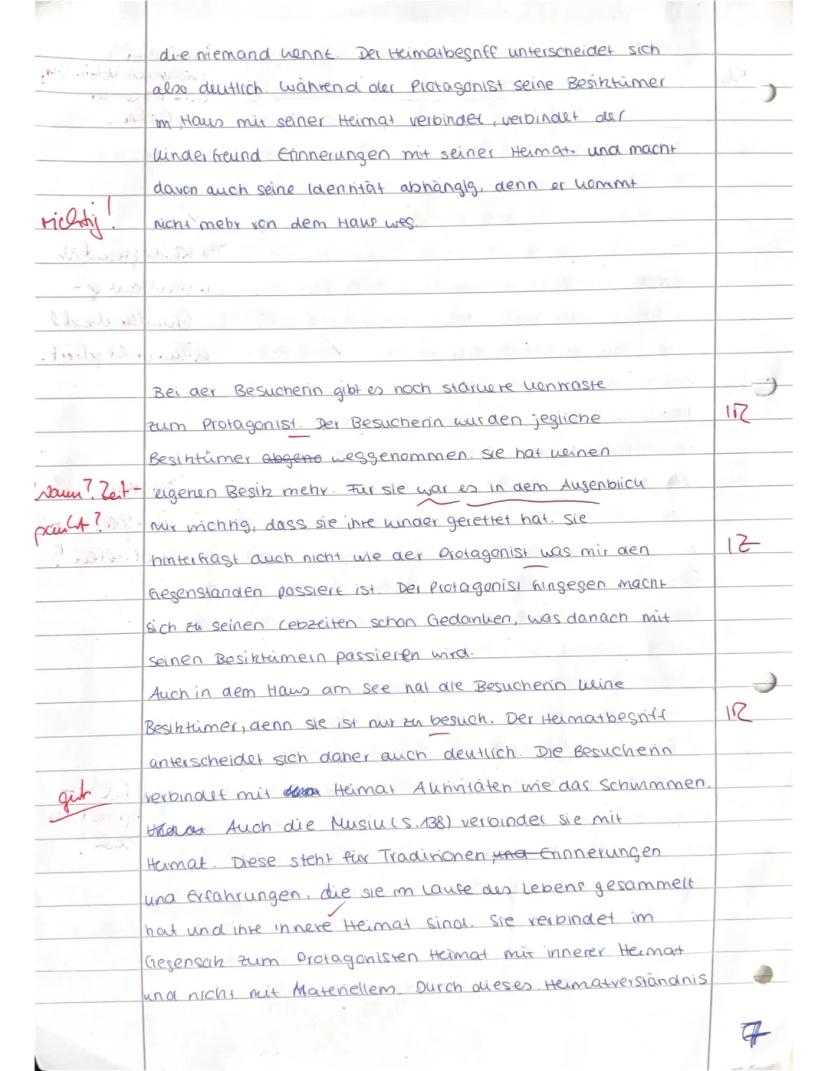 die niemand kennt. Der Heimatbegriff unterscheidet sich
also deutlich. Während der Protagonist seine Besitztümer
im Haus mit seiner Heimat verbindet, verbindet der
Kinderfreund Erinnerungen mit seiner Heimat. und macht
davon auch seine Identität abhängig, denn er kommt
richtig! nicht mehr von dem Haus weg.
Bei der Besucherin gibt es noch stärkere Kontraste
zum Protagonist. Der Besucherin wurden jegliche 1R
Besitztümer abgeno weggenommen. Sie hat keinen
Wann? Zeit- eigenen Besitz mehr. Für sie war es in dem Augenblick
punkt? nur wichtig, dass sie ihre Kinder gerettet hat. Sie
hinterfragt auch nicht wie der Protagonist was mit den 1Z
Gegenständen passiert ist. Der Protagonist hingegen macht
sich zu seinen Lebzeiten schon Gedanken, was danach mit
seinen Besitztümern passieren wird.
Auch in dem Haus am See hat die Besucherin keine
Besitztümer, denn sie ist nur zu besuch. Der Heimatbegriff 1R
unterscheidet sich daher auch deutlich. Die Besucherin
gut verbindet mit Heimat Aktivitäten wie das Schwimmen.
Auch die Musik (S. 138) verbindet sie mit
Heimat. Diese steht für Traditionen und Erinnerungen
und Erfahrungen, die sie im Laufe des Lebens gesammelt
hat und ihre innere Heimat sind. Sie verbindet im
Gegensatz zum Protagonisten Heimat mit innerer Heimat
und nicht mit Materiellem. Durch dieses Heimatverständnis
7